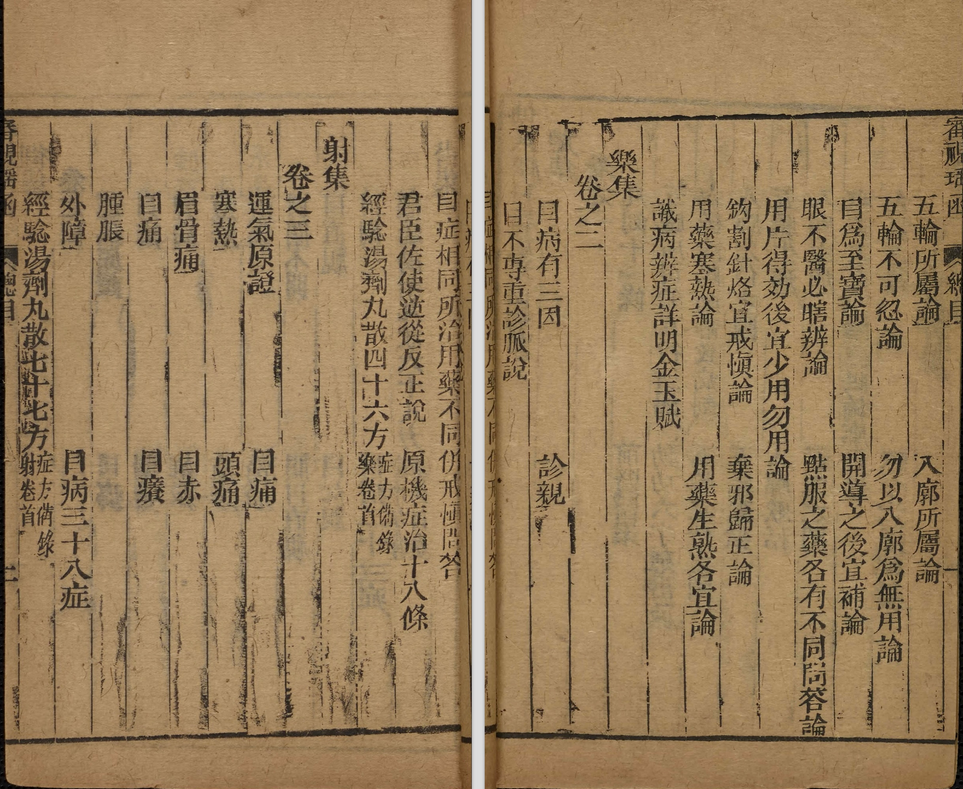 審視瑤函 總目
五輪所屬論 八廓所屬論
五輪不可忽論 勿以八廓為無用論
目為至寶論 開導之後宜補論
眼不醫必瞎辨論 點服之藥各有不同問答論
用片得効後宜少用勿用論
鈎割針烙宜戒慎論 棄邪歸正論
用藥寒熱論 用藥生熟各宜論
識病辨症詳明金玉賦
樂集
卷之二
目病有三因 診視
目不專重診脈說
目症相同所治用藥不同併戒慎問答
君臣佐使逆從反正說 原機症治十八條
經驗湯劑丸散四十六方 症方俻錄樂卷首
射集
卷之三
運氣原證 目痛
寒熱 頭痛
眉骨痛 目赤
目痛 目癢
腫脹
外障 目病三十八症
經驗湯劑丸散七十七方 症方俻錄射卷首
審視瑤函 總目